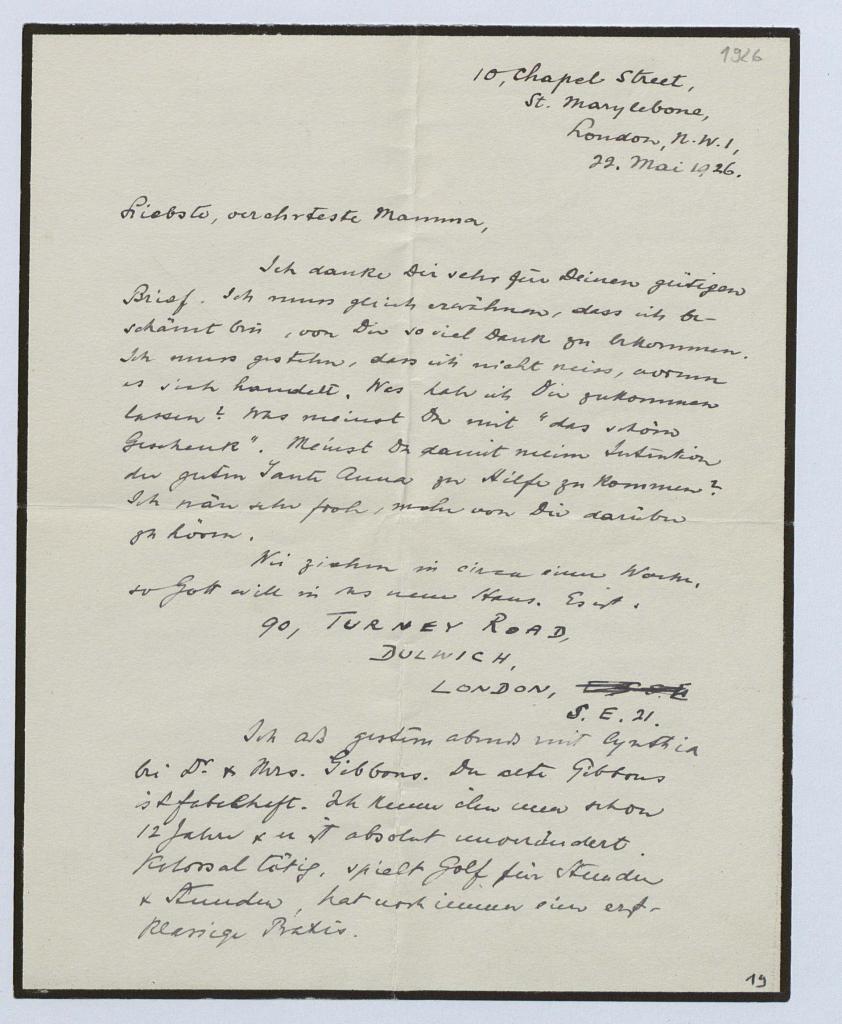 1926
10, Chapel Street,
St. Marylebone,
London, N.W.1,
22. Mai 1926.
Liebste, verehrteste Mamma,
Ich danke Dir sehr für Deinen gütigen
Brief. Ich muss gleich erwähnen, dass ich be-
schämt bin, von Dir so viel Dank zu bekommen.
Ich muss gestehn, dass ich nicht weiss, worum
es sich handelt. Was hab ich Dir zukommen
lassen? Was meinst Du mit "das schöne
Geschenk". Meinst Du damit meine Intention
der guten Tante Anna zu Hilfe zu kommen?
Ich wäre sehr froh, mehr von Dir darüber
zu hören.
Wir ziehen in circa einer Woche,
so Gott will in unser neues Haus. Es ist:
90, TURNEY ROAD,
DULWICH,
LONDON,
S. E. 21.
Ich aß gestern abends mit Cynthia
bei Dr. & Mrs. Gibbons. Der alte Gibbons
ist fabelhaft. Ich kenne ihn nun schon
12 Jahre & er ist absolut unverändert.
Kolossal tätig, spielt Golf für Stunden
& Stunden, hat noch immer eine erst-
klassige Praxis.
19